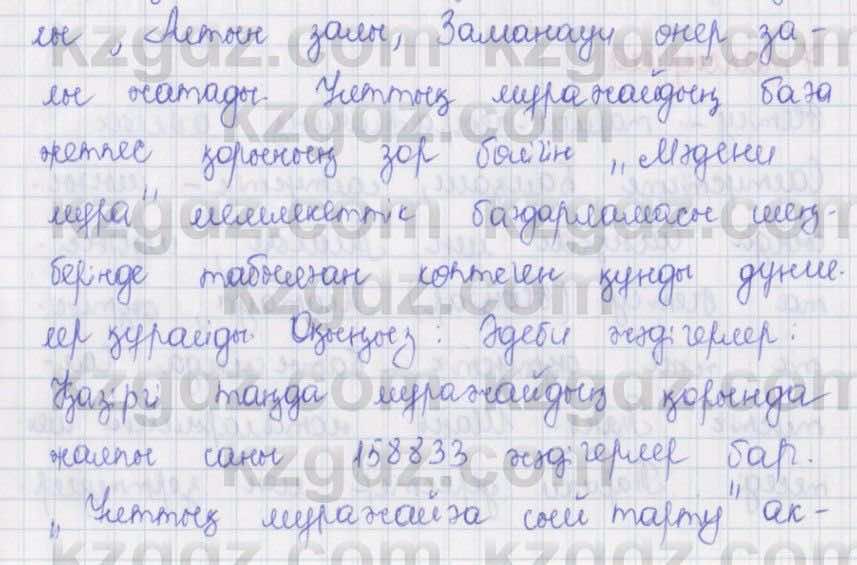 лы, „Алтын залы, Заманауи өнер за-
лы жатады. Ұлттық мұражайдың баға
жетпес қорының зор бөлігін „Мәдени
мұра" мемлекеттік бағдарламасы шең-
берінде табылған көптеген құнды дүние-
лер құрайды. Оқыңыз: Әдеби жәдігерлер:
Қазіргі таңда мұражайдың қорында
жалпы саны 158833 жәдігерлер бар.
„Ұлттық мұражайға сый тарту" ак-